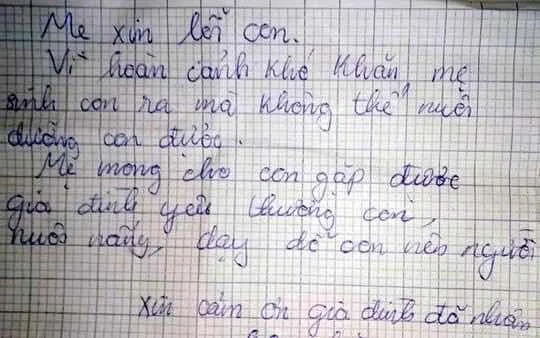 Mẹ xin lỗi con.
Vì hoàn cảnh khó khăn mẹ
sinh con ra mà không thể nuôi
dưỡng con được.
Mẹ mong cho con gặp được
gia đình yêu thương con,
nuôi nấng, dạy dỗ con nên người
xin cảm ơn gia đình đã nhận